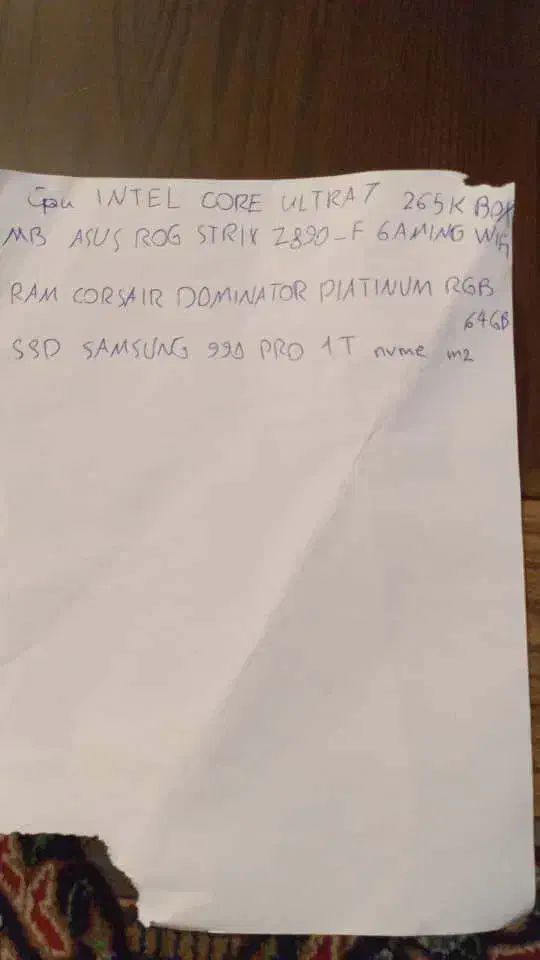 Cpu INTEL CORE ULTRA 7 265K BOX
MB ASUS ROG STRIX Z890-F GAMING Wifi
RAM CORSAIR DOMINATOR PLATINUM RGB
64GB
SSD SAMSUNG 990 PRO 1T nvme m2